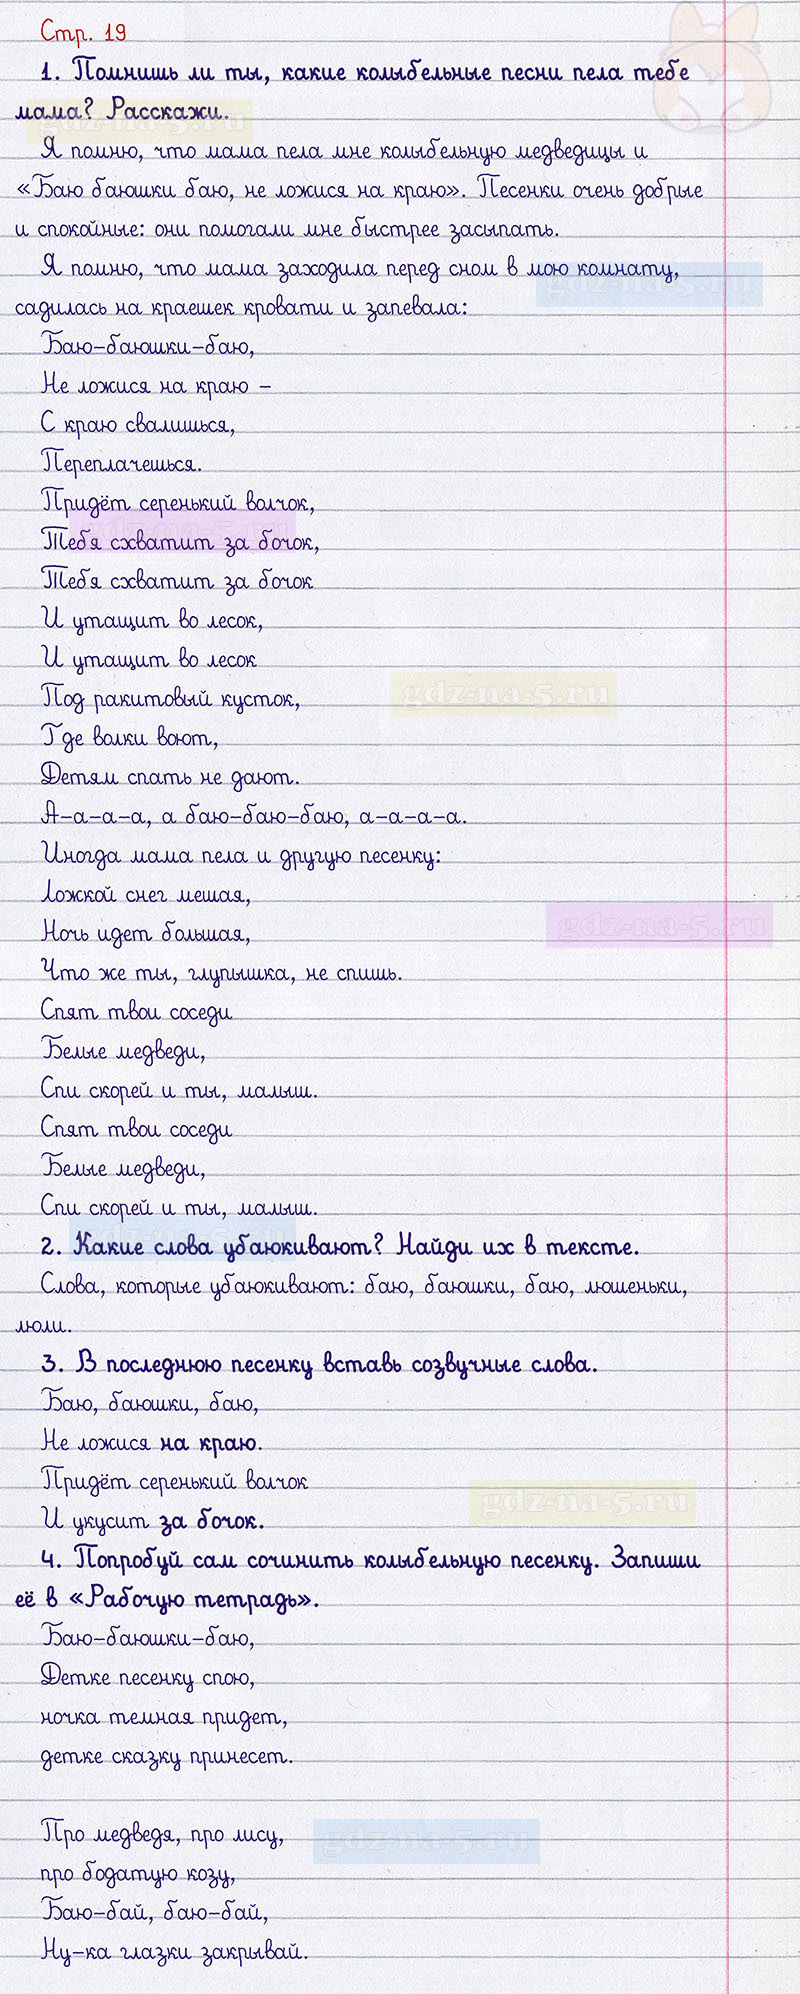 Стр. 19
1. Помнишь ли ты, какие колыбельные песни пела тебе
мама? Расскажи.
gdz-na-5.ru
Я помню, что мама пела мне колыбельную медведицы и
«Баю баюшки баю, не ложися на краю». Песенки очень добрые
и спокойные: они помогали мне быстрее засыпать.
Я помню, что мама заходила перед сном в мою комнату,
gdz-na-5.ru
садилась на краешек кровати и запевала:
Баю-баюшки-баю,
Не ложися на краю -
С краю свалишься,
Переплачешься.
Придёт серенький волчок,
gdz-na-5.ru
Тебя схватит за бочок,
Тебя схватит за бочок
И утащит во лесок,
И утащит во лесок
Под ракитовый кусток,
gdz-na-5.ru
Где волки воют,
Детям спать не дают.
А-а-а-а, а баю-баю-баю, а-а-а-а.
Иногда мама пела и другую песенку:
Ложкой снег мешая,
Ночь идет большая,
gdz-na-5.ru
Что же ты, глупышка, не спишь.
Спят твои соседи
Белые медведи,
Спи скорей и ты, малыш.
Спят твои соседи
Белые медведи,
Спи скорей и ты, малыш.
gdz-na-5.ru
2. Какие слова убаюкивают? Найди их в тексте.
Слова, которые убаюкивают: баю, баюшки, баю, люшеньки,
люли.
3. В последнюю песенку вставь созвучные слова.
Баю, баюшки, баю,
Не ложися на краю.
Придёт серенький волчок
gdz-na-5.ru
И укусит за бочок.
4. Попробуй сам сочинить колыбельную песенку. Запиши
её в «Рабочую тетрадь».
Баю-баюшки-баю,
Детке песенку спою,
ночка темная придет,
детке сказку принесет.
Про медведя, про лису,
gdz-na-5.ru
про бодатую козу,
Баю-бай, баю-бай,
Ну-ка глазки закрывай.